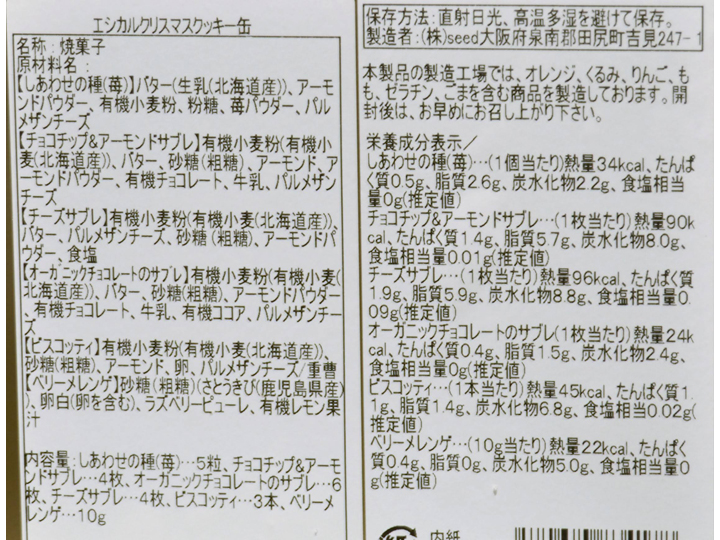 エシカルクリスマスクッキー缶
名称：焼菓子
原材料名：
【しあわせの種(苺)】バター(生乳(北海道産))、アーモ
ンドパウダー、有機小麦粉、粉糖、苺パウダー、パル
メザンチーズ
【チョコチップ&アーモンドサブレ】有機小麦粉(有機小
麦(北海道産))、バター、砂糖(粗糖)、アーモンド、ア
ーモンドパウダー、有機チョコレート、牛乳、パルメザン
チーズ
【チーズサブレ】有機小麦粉(有機小麦(北海道産))、
バター、パルメザンチーズ、砂糖(粗糖)、アーモンドパ
ウダー、食塩
【オーガニックチョコレートのサブレ】有機小麦粉(有機小麦(
北海道産))、バター、砂糖(粗糖)、アーモンドパウダー
、有機チョコレート、牛乳、有機ココア、パルメザンチー
ズ
【ビスコッティ】有機小麦粉(有機小麦(北海道産))、
砂糖(粗糖)、アーモンド、卵、パルメザンチーズ/重曹
【ベリーメレンゲ】砂糖(粗糖)(さとうきび(鹿児島県産)
)、卵白(卵を含む)、ラズベリーピューレ、有機レモン果
汁
内容量：しあわせの種(苺)…5粒、チョコチップ&アーモ
ンドサブレ…4枚、オーガニックチョコレートのサブレ…6
枚、チーズサブレ…4枚、ビスコッティ…3本、ベリーメ
レンゲ…10g
保存方法：直射日光、高温多湿を避けて保存。
製造者：(株)seed大阪府泉南郡田尻町吉見247-1
本製品の製造工場では、オレンジ、くるみ、りんご、も
も、ゼラチン、ごまを含む商品を製造しております。開
封後は、お早めにお召し上がり下さい。
栄養成分表示／
しあわせの種(苺)…(1個当たり)熱量34kcal、たんぱ
く質0.5g、脂質2.6g、炭水化物2.2g、食塩相当
量0g(推定値)
チョコチップ&アーモンドサブレ…(1枚当たり)熱量90k
cal、たんぱく質1.4g、脂質5.7g、炭水化物8.0g、
食塩相当量0.01g(推定値)
チーズサブレ…(1枚当たり)熱量96kcal、たんぱく質
1.9g、脂質5.9g、炭水化物8.8g、食塩相当量0.
09g(推定値)
オーガニックチョコレートのサブレ(1枚当たり)熱量24k
cal、たんぱく質0.4g、脂質1.5g、炭水化物2.4g、
食塩相当量0g(推定値)
ビスコッティ…(1本当たり)熱量45kcal、たんぱく質1.
1g、脂質1.4g、炭水化物6.8g、食塩相当0.02g(
推定値)
ベリーメレンゲ…(10g当たり)熱量22kcal、たんぱく
質0.4g、脂質0g、炭水化物5.0g、食塩相当量0
g(推定値)
内紙